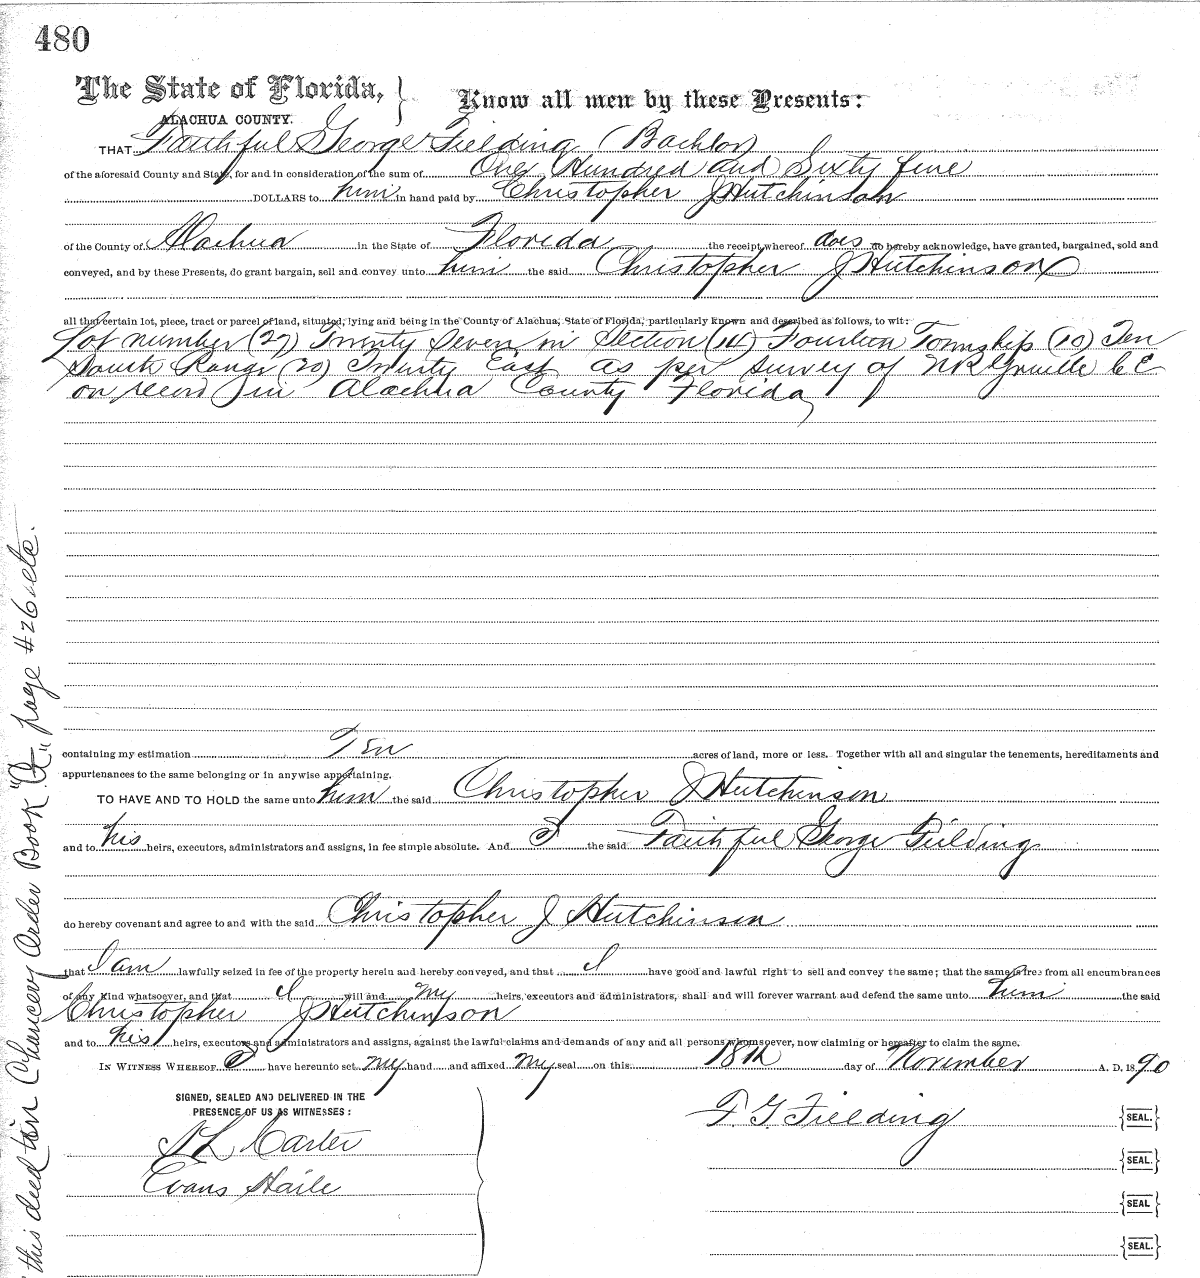 480
The State of Florida, } Know all men by these Presents:
ALACHUA COUNTY.
THAT Faithful George Fielding (Bachlor)
of the aforesaid County and State, for and in consideration of the sum of One Hundred and Sixty five
DOLLARS to him in hand paid by Christopher J Hutchinson
of the County of Alachua in the State of Florida the receipt whereof does do hereby acknowledge, have granted, bargained, sold and
conveyed, and by these Presents, do grant bargain, sell and convey unto him the said Christopher J Hutchinson
all that certain lot, piece, tract or parcel of land, situated, lying and being in the County of Alachua, State of Florida, particularly known and described as follows, to wit:
Lot number (27) Twenty Seven in Section (14) Fourteen Township (10) Ten
South Range (20) Twenty East as per survey of C E
on record in Alachua County Florida
containing my estimation Ten acres of land, more or less. Together with all and singular the tenements, hereditaments and
appurtenances to the same belonging or in anywise appertaining.
TO HAVE AND TO HOLD the same unto him the said Christopher J Hutchinson
and to his heirs, executors, administrators and assigns, in fee simple absolute. And I the said Faithful George Fielding
do hereby covenant and agree to and with the said Christopher J Hutchinson
that I am lawfully seized in fee of the property herein and hereby conveyed, and that I have good and lawful right to sell and convey the same; that the same is free from all encumbrances
of any kind whatsoever, and that I will and my heirs, executors and administrators, shall and will forever warrant and defend the same unto him the said
Christopher J Hutchinson
and to his heirs, executors and administrators and assigns, against the lawful claims and demands of any and all persons whomsoever, now claiming or hereafter to claim the same.
IN WITNESS WHEREOF I have hereunto set my hand and affixed my seal on this 18th day of November A. D. 18 90
SIGNED, SEALED AND DELIVERED IN THE
PRESENCE OF US AS WITNESSES:
F. G. Fielding {SEAL.}
Carter
{SEAL.}
Evans Haile
{SEAL}
{SEAL.}
this deed in Chancery Order Book page 426 etc.